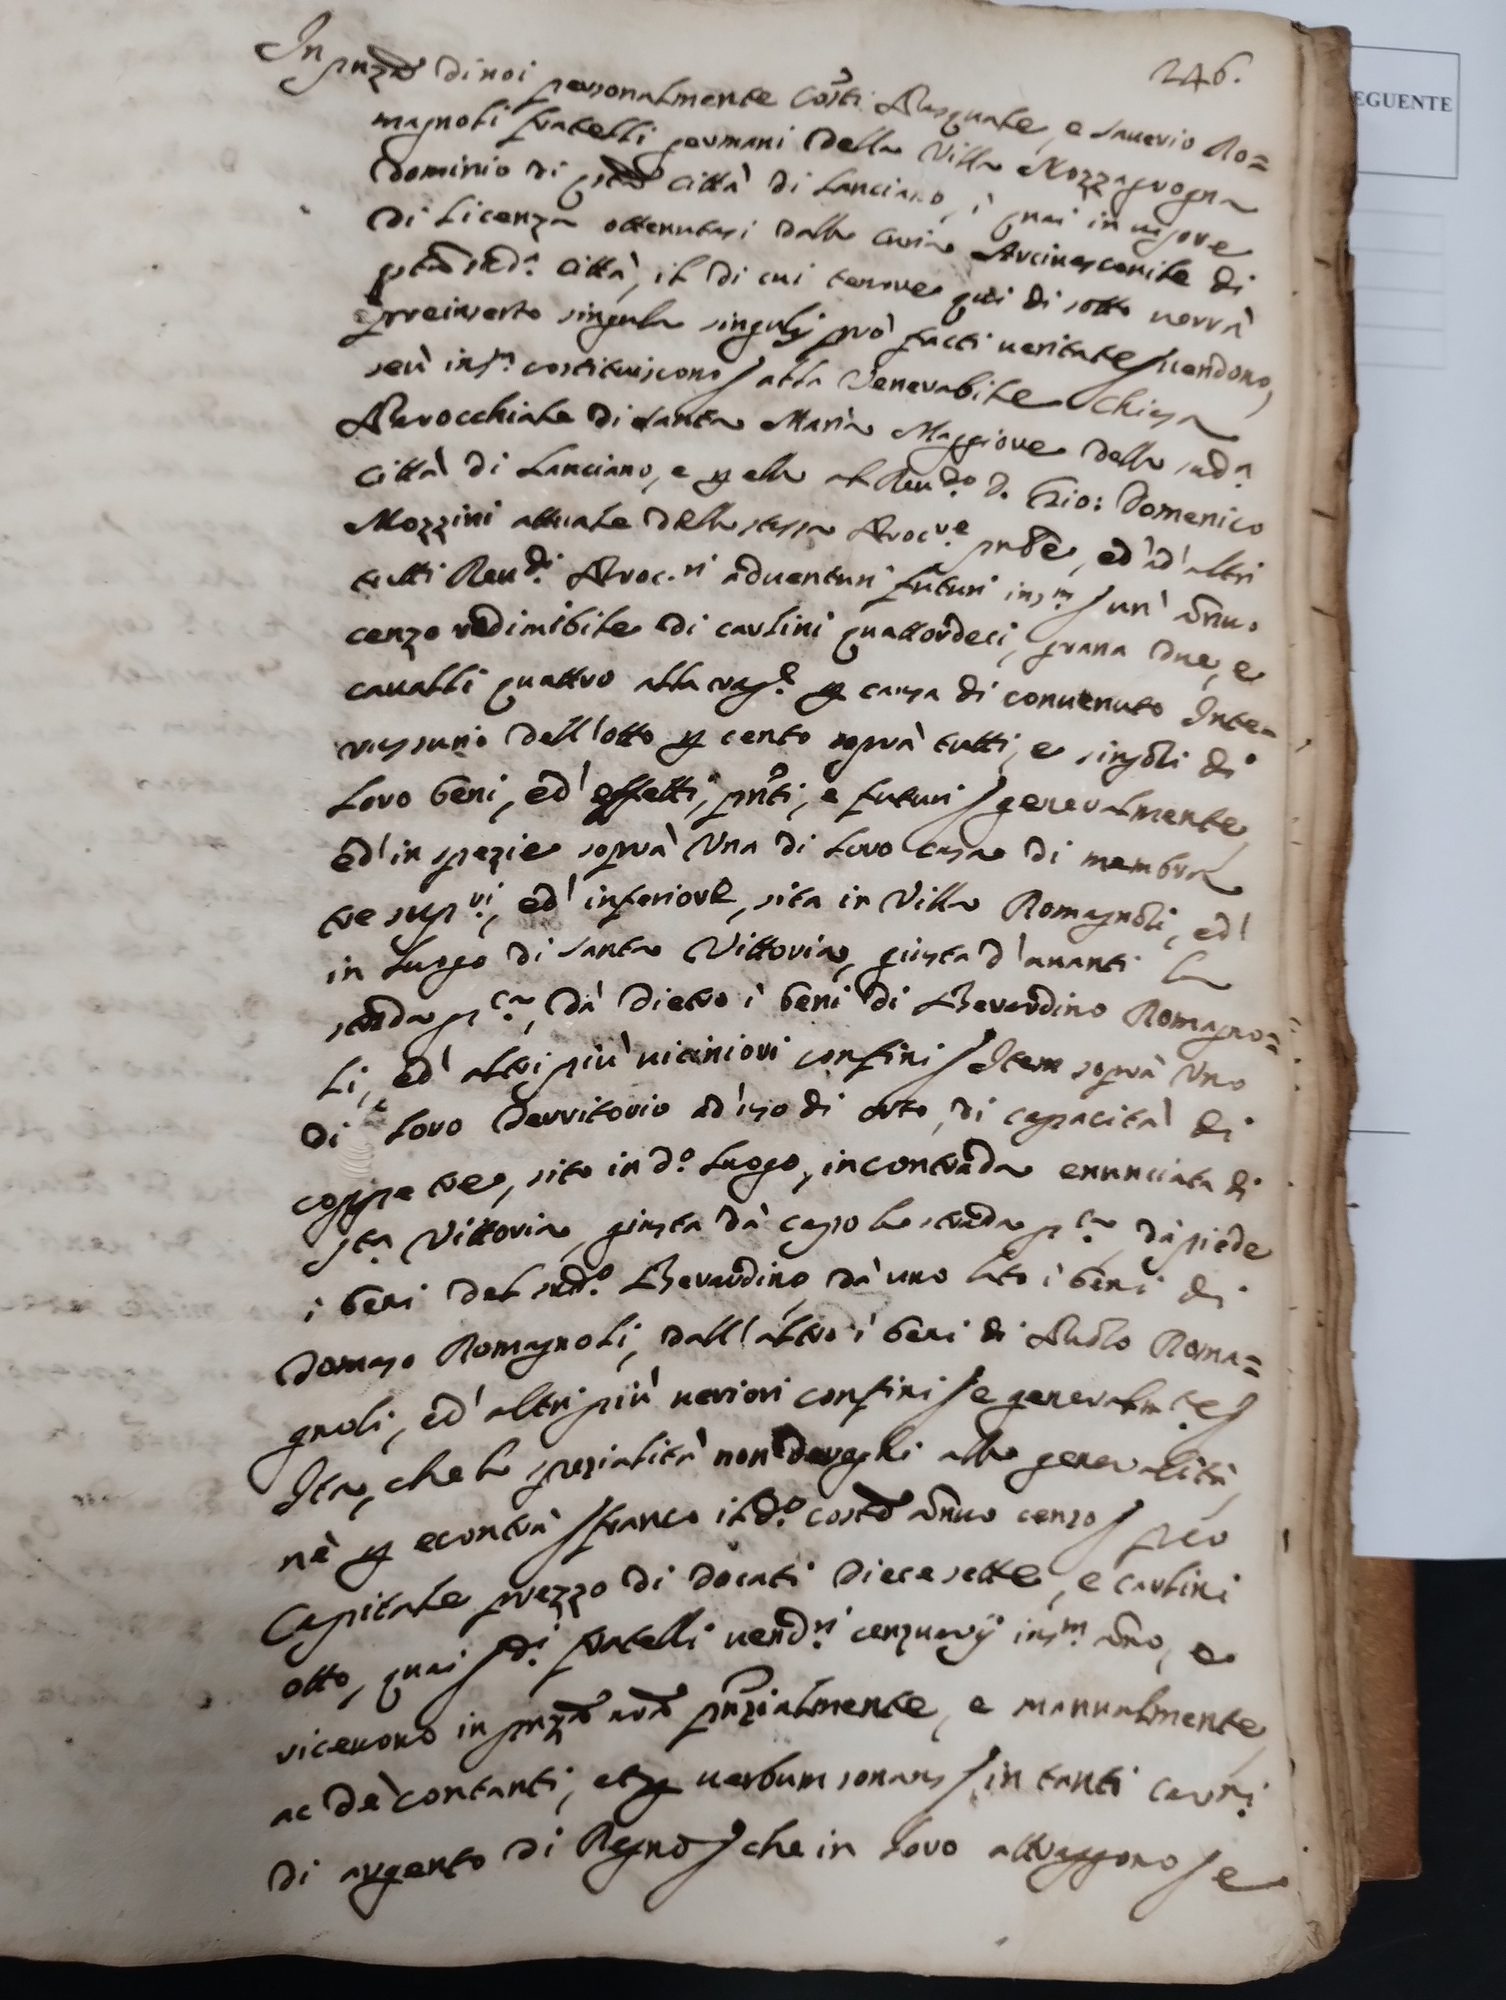 246.
EGUENTE
In pnza di noi personalmente Costi Pasquale, e Saverio Ro=
magnoli fratelli germani della Villa Mozzagrogna
dominio di pta Città di Lanciano, i quai in vigore
di Licenza ottenutasi dalla Curia Arcivescovile di
pta sud.a Città, il di cui tenore qui di sotto verrà
preinserto singula singulis prò facti veritate ʃ vendono,
seù ins.m costituiscono ʃ alla Venerabile Chiesa
Parocchiale di Santa Maria Maggiore della sud.a
Città di Lanciano, e p essa al Reu.do D. Gio: Domenico
Mozzini attuale della stessa Proc.re pnte, ed' ad' altri
tutti Reu.di Proc.ri adventuri futuri ins.m ʃ un' annuo
cenzo redimibile di carlini quattordeci, grana due, e
cavalli quattro alla rag.e p causa di convenuto Inte=
russurio dell'otto p cento soprà tutti, e singoli di
loro beni, ed' effetti, pnti, e futuri ʃ generalmente,
ed' in spezie soprà Una di loro casa di membra
tre sup.ri, ed' inferiore, sita in Villa Romagnoli, ed'
in luogo di Santa Vittoria, giusta d'avanti la
strada p.ca, dà dietro i beni di Berardino Romagno=
li, ed' altri più viciniori confini ʃ Item soprà Uno
di loro Territorio ad'uso di orto, di capacità di
coppe tre, sito in d.o luogo, in contrada enunciata di
sta Vittoria, giusta dà capo la strada p.ca, dà piede
i beni del sud.o Berardino, dà uno lato i beni di
Domaso Romagnoli, dall'altro i beni di Paolo Roma=
gnoli, ed' altri più veriori confini ʃ e generalm.te ʃ
Ita, che la spezialità non deroghi alla generalità,
nè p econtrà ʃ franco il d.o costo annuo cenzo ʃ p lo
Capitale prezzo di docati diecesette, e carlini
otto, quai sd.i fratelli vend.ri cenzuarij ins.m ano, e
riceuono in pnza nra pnzialmente, e manualmente,
ac de contanti, et p verbum sonans ʃ in tanti carni
di argento di Regno ʃ che in loro attraggono ʃ e